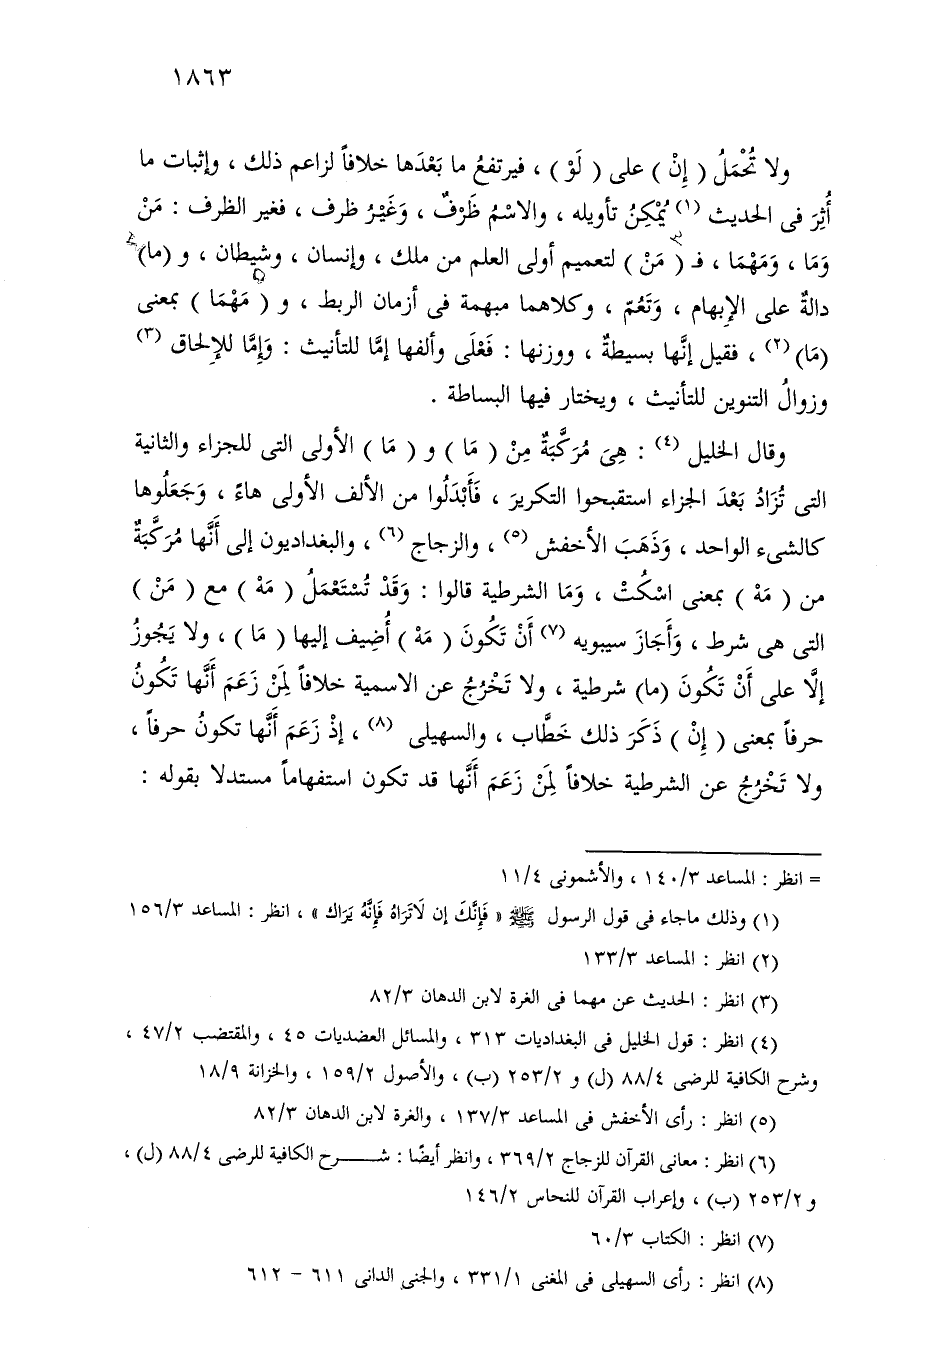 ١٨٦٣
ولا تُحْمَلُ ( إِنْ ) على ( لَوْ ) ، فيرتفعُ ما بَعْدَها خلافاً لزاعم ذلك ، وإثبات ما
أُثِرَ فى الحديث (١) يُمْكِنُ تأويله ، والاسْمُ ظَرْفٌ ، وَغَيْرُ ظرف ، فغير الظرف : مَنْ
وَمَا ، وَمَهْمَا ، فـ ( مَنْ ) لتعميم أولى العلم من ملك ، وإنسان ، وشيطان ، و (ما)
دالةٌ على الإبهام ، وَتَعُمّ ، وكلاهما مبهمة فى أزمان الربط ، و ( مَهْمَا ) بمعنى
(مَا) (٢) ، فقيل إنَّها بسيطةٌ ، ووزنها : فَعْلَى وألفها إمَّا للتأنيث : وَإِمَّا للإلحاق (٣)
وزوالُ التنوين للتأنيث ، ويختار فيها البساطة .
وقال الخليل (٤) : هِىَ مُرَكَّبَةٌ مِنْ ( مَا ) و ( مَا ) الأولى التى للجزاء والثانية
التى تُزَادُ بَعْدَ الجزاء استقبحوا التكريرَ ، فَأَبْدَلُوا من الألف الأولى هاءً ، وَجَعَلُوها
كالشىء الواحد ، وَذَهَبَ الأخفش (٥) ، والزجاج (٦) ، والبغداديون إلى أَنَّها مُرَكَّبَةٌ
من ( مَهْ ) بمعنى اسْكُتْ ، وَمَا الشرطية قالوا : وَقَدْ تُسْتَعْمَلُ ( مَهْ ) مع ( مَنْ )
التى هى شرط ، وَأَجَازَ سيبويه (٧) أَنْ تَكُونَ ( مَهْ ) أُضِيف إليها ( مَا ) ، ولا يَجُوزُ
إلَّا على أَنْ تَكُونَ (ما) شرطية ، ولا تَخْرُجُ عن الاسمية خلافاً لِمَنْ زَعَمَ أَنَّها تَكُونُ
حرفاً بمعنى ( إِنْ ) ذَكَرَ ذلك خَطَّاب ، والسهيلى (٨) ، إذْ زَعَمَ أَنَّها تكونُ حرفاً ،
ولا تَخْرُجُ عن الشرطية خلافاً لِمَنْ زَعَمَ أَنَّها قد تكون استفهاماً مستدلا بقوله :
= انظر : المساعد ١٤٠/٣ ، والأشمونى ١١/٤
(١) وذلك ماجاء فى قول الرسول ﷺ « فَإِنَّكَ إن لَاتَرَاهُ فَإِنَّهُ يَرَاك » ، انظر : المساعد ١٥٦/٣
(٢) انظر : المساعد ١٣٣/٣
(٣) انظر : الحديث عن مهما فى الغرة لابن الدهان ٨٢/٣
(٤) انظر : قول الخليل فى البغداديات ٣١٣ ، والمسائل العضديات ٤٥ ، والمقتضب ٤٧/٢ ،
وشرح الكافية للرضى ٨٨/٤ (ل) و ٢٥٣/٢ (ب) ، والأصول ١٥٩/٢ ، والخزانة ١٨/٩
(٥) انظر : رأى الأخفش فى المساعد ١٣٧/٣ ، والغرة لابن الدهان ٨٢/٣
(٦) انظر : معانى القرآن للزجاج ٣٦٩/٢ ، وانظر أيضًا : شـــرح الكافية للرضى ٨٨/٤ (ل) ،
و ٢٥٣/٢ (ب) ، وإعراب القرآن للنحاس ١٤٦/٢
(٧) انظر : الكتاب ٦٠/٣
(٨) انظر : رأى السهيلى فى المغنى ٣٣١/١ ، والجنى الدانى ٦١١ - ٦١٢